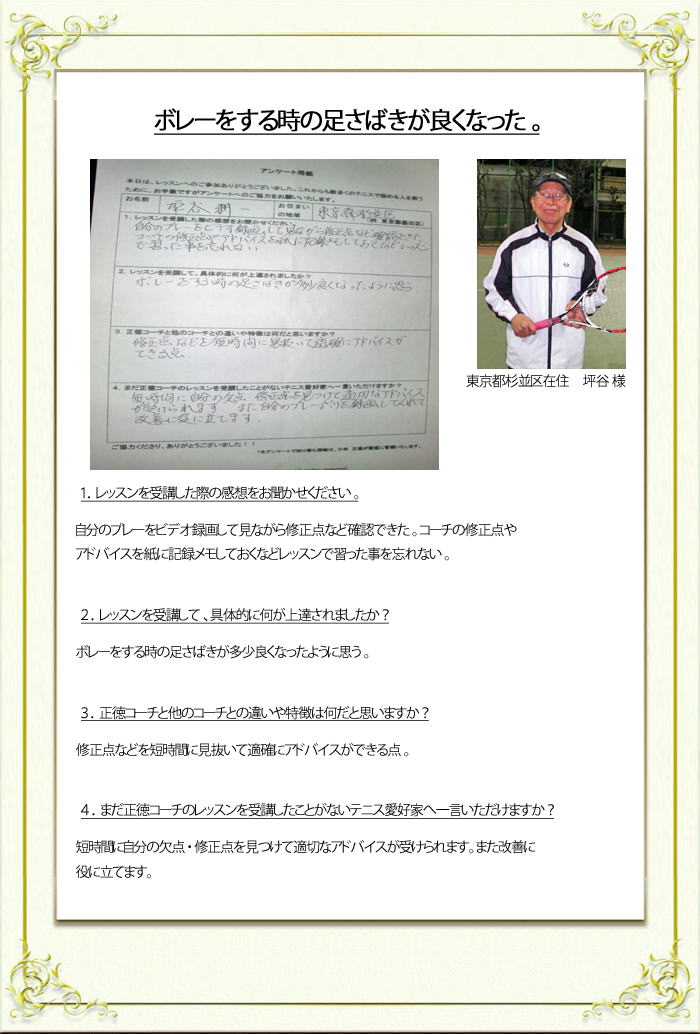 ボレーをする時の足さばきが良くなった。
アンケート用紙
本日は、レッスンへのご参加ありがとうございました。これからも数多くのテニスで悩める人を救う
ために、お手数ですがアンケートへのご協力をお願いいたします。
お名前 坪谷 耕一 お住まいの地域 東京都杉並区 (例 東京都墨田区)
1. レッスンを受講した際の感想をお聞かせください。
自分のプレーをビデオ録画して見ながら修正点など確認できた
コーチの修正点やアドバイスを紙に記録メモしておくなどレッスン
で習った事を忘れない
2. レッスンを受講して、具体的に何が上達されましたか?
ボレーをする時の足さばきが多少良くなったように思う.
3. 正徳コーチと他のコーチとの違いや特徴は何だと思いますか?
修正点などを短時間に見抜いて適確にアドバイスが
できる点.
4. まだ正徳コーチのレッスンを受講したことがないテニス愛好家へ一言いただけますか?
短時間に自分の欠点 修正点を見つけて適切なアドバイス
が受けられます また自分のプレーぶりを録画してくれて
改善に役に立てます.
ご協力くださり、ありがとうございました!!
東京都杉並区在住 坪谷 様
1. レッスンを受講した際の感想をお聞かせください。
自分のプレーをビデオ録画して見ながら修正点など確認できた。コーチの修正点や
アドバイスを紙に記録メモしておくなどレッスンで習った事を忘れない。
2. レッスンを受講して、具体的に何が上達されましたか?
ボレーをする時の足さばきが多少良くなったように思う。
3. 正徳コーチと他のコーチとの違いや特徴は何だと思いますか?
修正点などを短時間に見抜いて適確にアドバイスができる点。
4. まだ正徳コーチのレッスンを受講したことがないテニス愛好家へ一言いただけますか?
短時間に自分の欠点・修正点を見つけて適切なアドバイスが受けられます。また改善に
役に立てます。